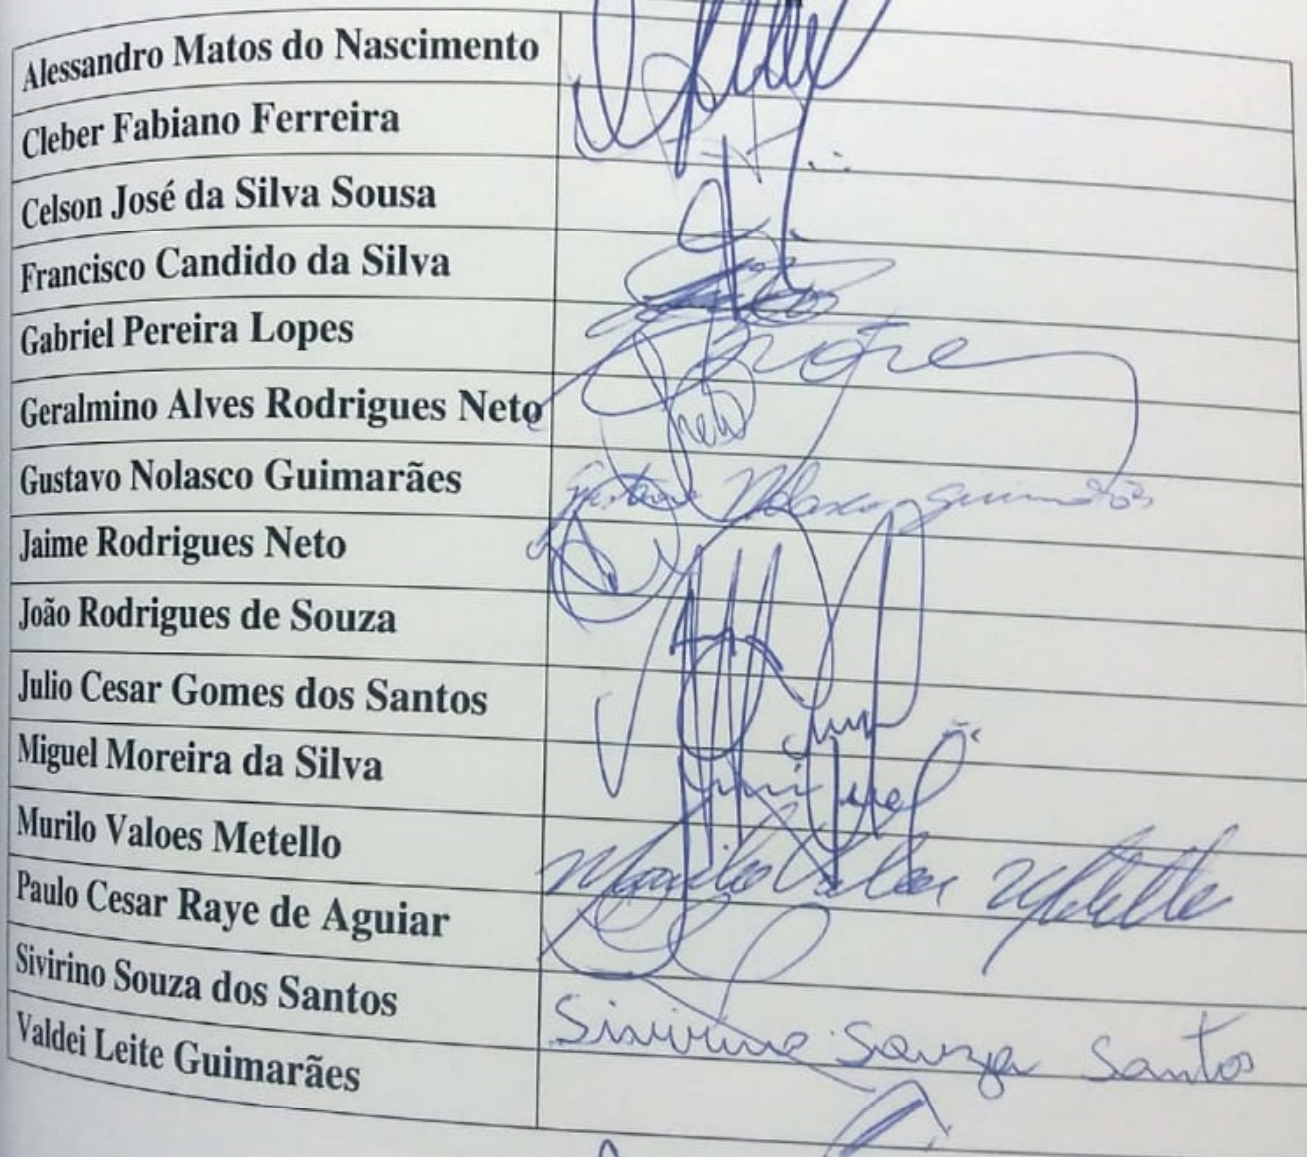 Alessandro Matos do Nascimento
Cleber Fabiano Ferreira
Celson José da Silva Sousa
Francisco Candido da Silva
Gabriel Pereira Lopes
Geralmino Alves Rodrigues Neto
Gustavo Nolasco Guimarães Gustavo Nolasco Guimarães
Jaime Rodrigues Neto
João Rodrigues de Souza
Julio Cesar Gomes dos Santos
Miguel Moreira da Silva Miguel
Murilo Valoes Metello Murilo Valoes Metello
Paulo Cesar Raye de Aguiar
Sivirino Souza dos Santos Sivirino Souza Santos
Valdei Leite Guimarães